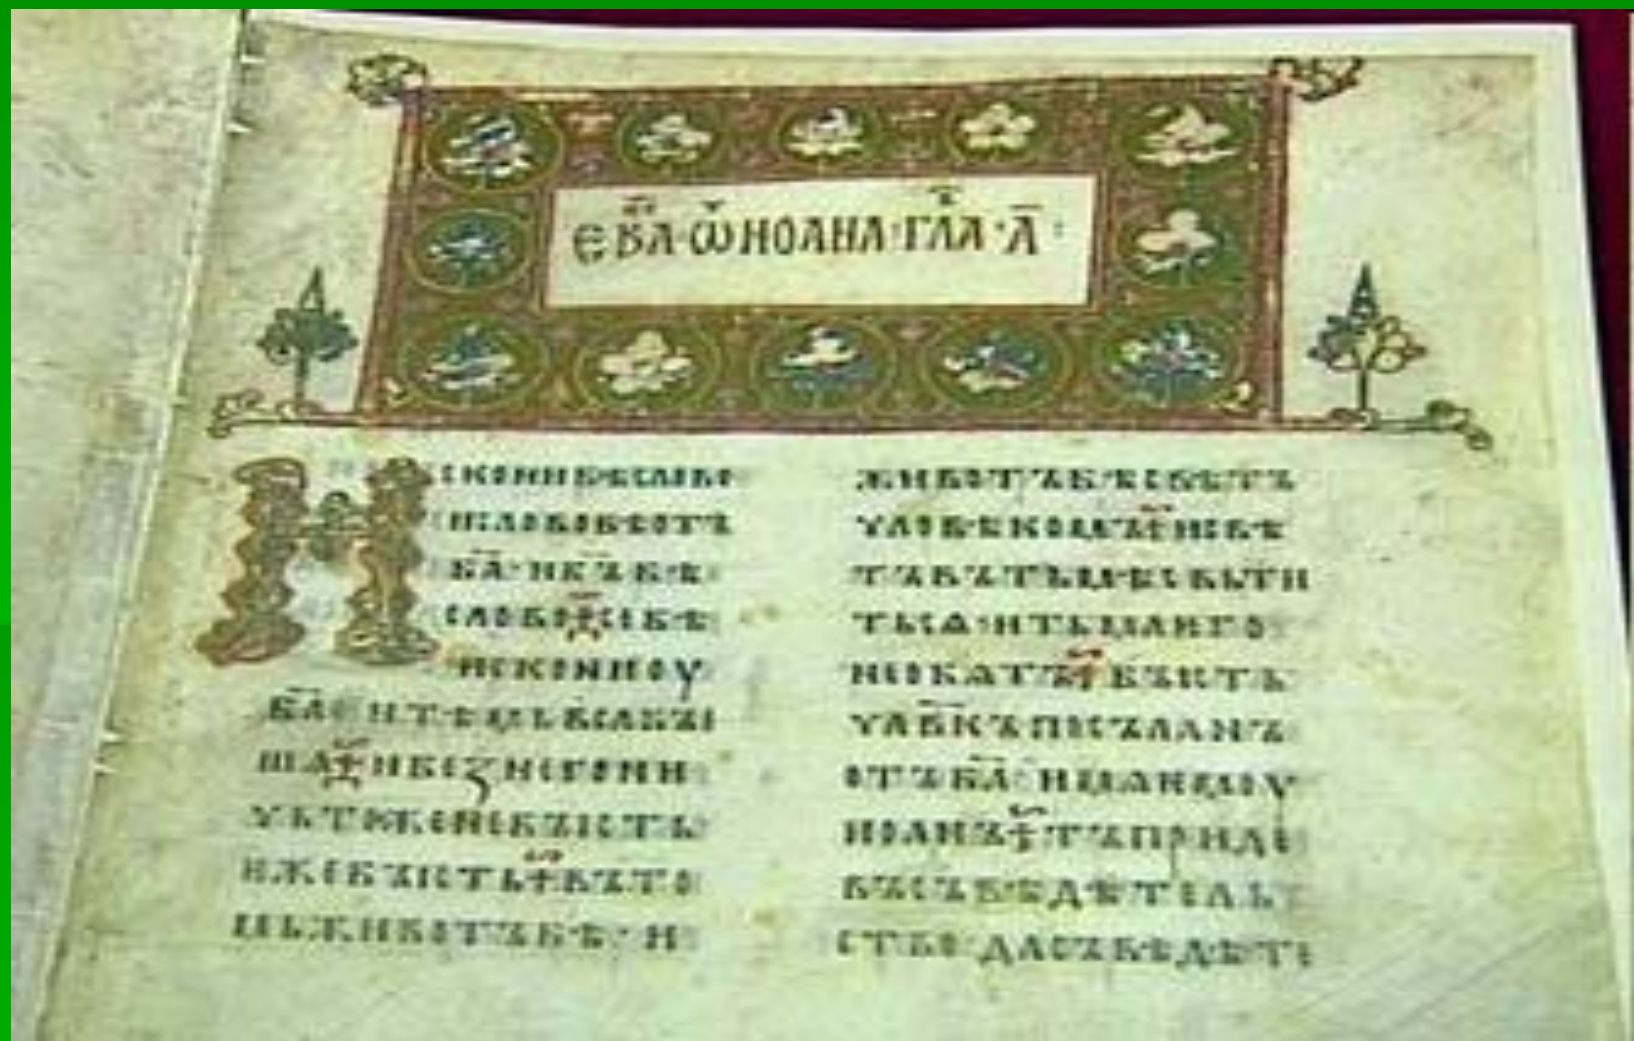 ЕВⷢ҇А·Ѿ ИОАНА·ГЛⷡ҇А·А҃·
Искони бѣ слово
и слово бѣ отъ
ба҃ и бъ҃ бѣ
слово се бѣ
искони оу
ба҃ и тѣмь вьса бы
ша и без него ни
чьтоже не бысть
еже бысть въ то
мь животъ бѣ и
животъ бѣ свѣтъ
чловѣкомъ и свѣ
тъ въ тьмѣ свьти
тьсѧ и тьма его
не обѧтъ бысть
чл҃вкъ посъланъ
отъ ба҃ имѧ емоу
иоанъ тъ приде
въ съвѣдѣтель
ство да съвѣдѣте